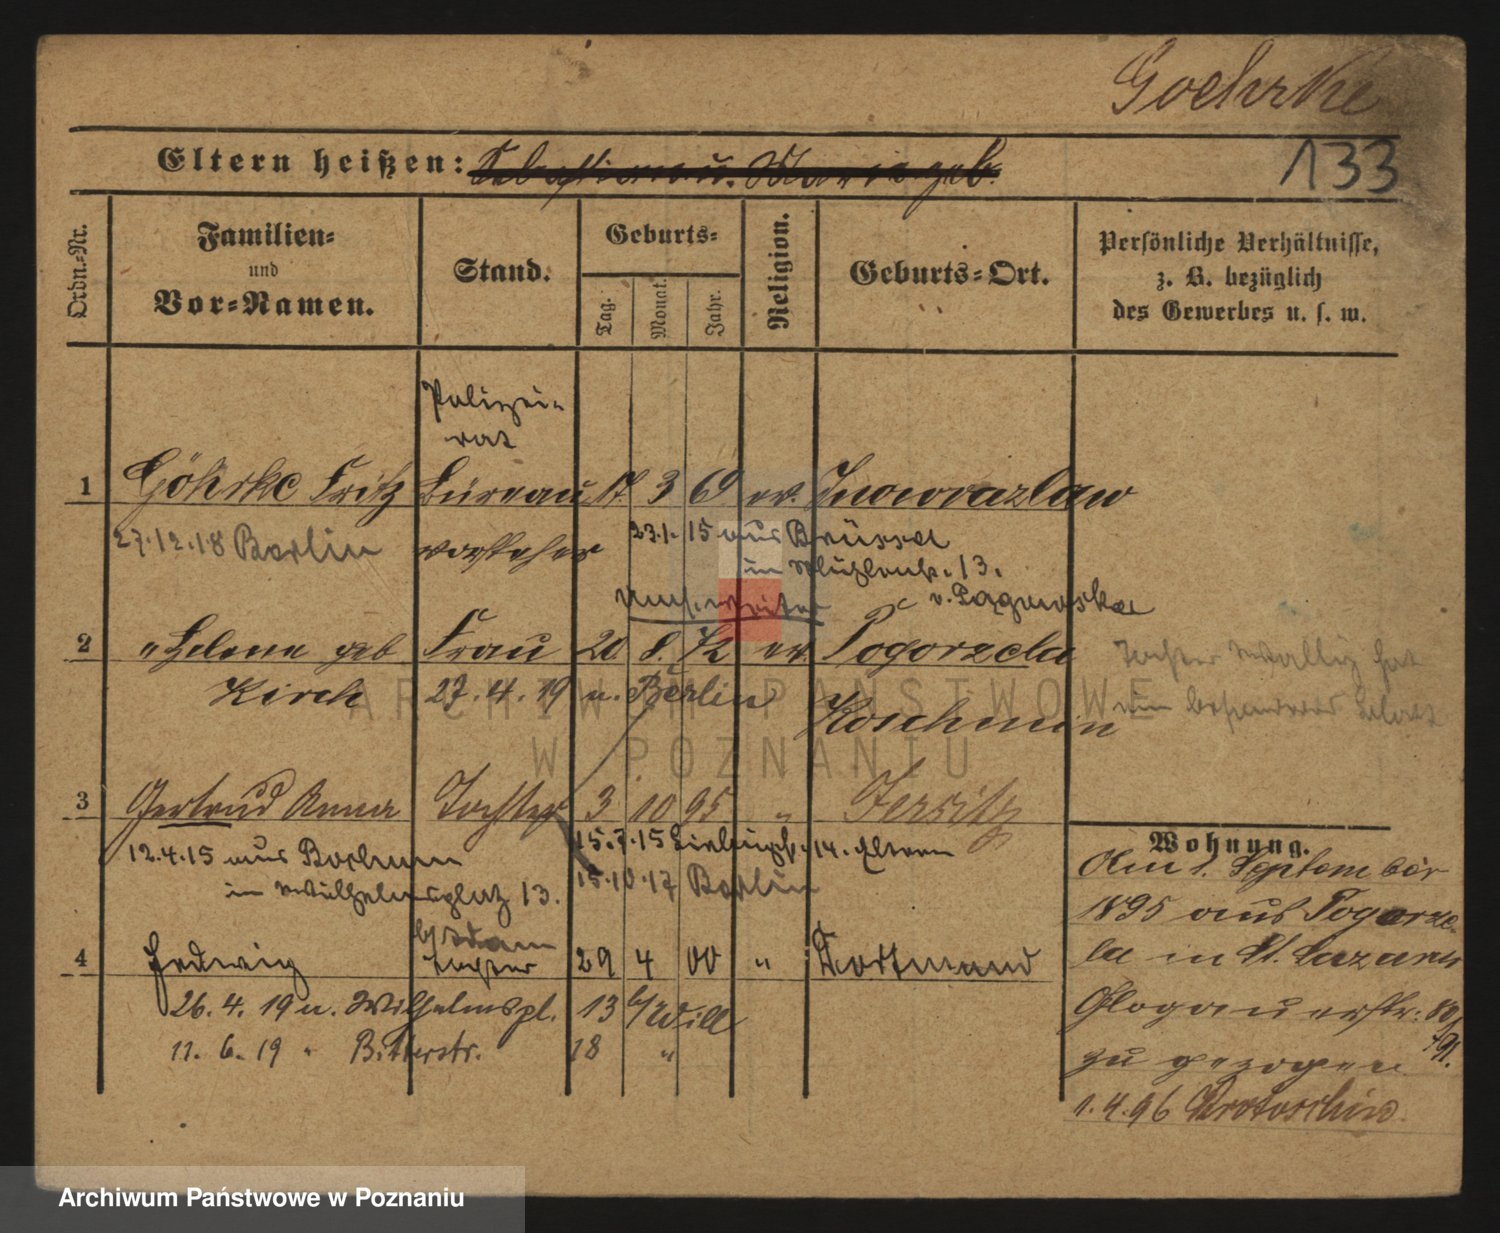 Goehrke
133
Eltern heißen: u. Maria geb.
Ordn.-Nr.
Familien-
und
Vor-Namen.
Stand.
Geburts-
Tag.
Monat.
Jahr.
Religion.
Geburts-Ort.
Persönliche Verhältnisse,
z. B. bezüglich
des Gewerbes u. s. w.
Polizei-
rat
1 Göhrke Fritz Bureau 17. 3 69 ev. Inowrazlaw
27.12.18 Berlin vorsteher 23.1.15 aus Brüssel
in 13.
2 " Helene geb Frau 20 8. 72 ev. Pogorzela
Kirch 27.4.19 n. Berlin Koschmin
Tochter Wally hat
ein besonderes Blatt
3 Gertrud Anna Tochter 3 10 95 " Jersitz
12.4.15 aus Bochum 15.7.15 14. Eltern
in Wilhelmsplatz 13. 15.10.17 Berlin
4 Hedwig Tochter 29 4 00 " Dortmund
26.4.19 u. Wilhelmspl. 13 b/Will
11.6.19 " Bitterstr. 18 "
Wohnung.
Am 1. September
1895 aus Pogorze-
la in St. Lazarus
Glogauerstr.
zugezogen
1.4.96 Krotoschin.
ARCHIWUM PAŃSTWOWE
W POZNANIU
Archiwum Państwowe w Poznaniu